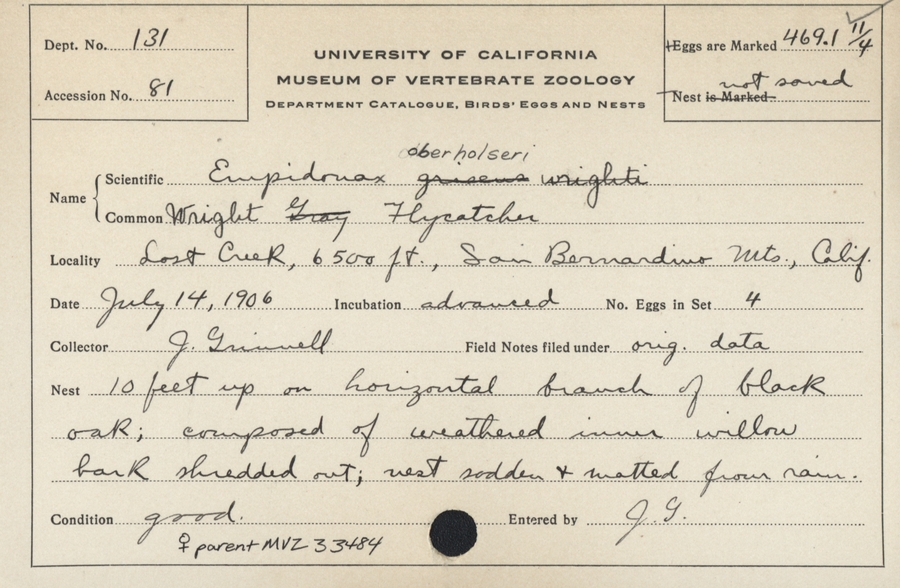 Dept. No. 131
Accession No. 81
UNIVERSITY OF CALIFORNIA
MUSEUM OF VERTEBRATE ZOOLOGY
DEPARTMENT CATALOGUE, BIRDS' EGGS AND NESTS
Eggs are Marked 469.1 11/4
not saved
Nest is Marked
oberholseri
Name
Scientific Empidonax griseus wrighti
Common Wright Gray Flycatcher
Locality Lost Creek, 6500 ft., San Bernardino Mts., Calif.
Date July 14, 1906 Incubation advanced No. Eggs in Set 4
Collector J. Grinnell Field Notes filed under orig. data
Nest 10 feet up on horizontal branch of black
oak; composed of weathered inner willow
bark shredded out; nest sodden & matted from rain.
Condition good. Entered by J.G.
♀ parent MVZ 33484